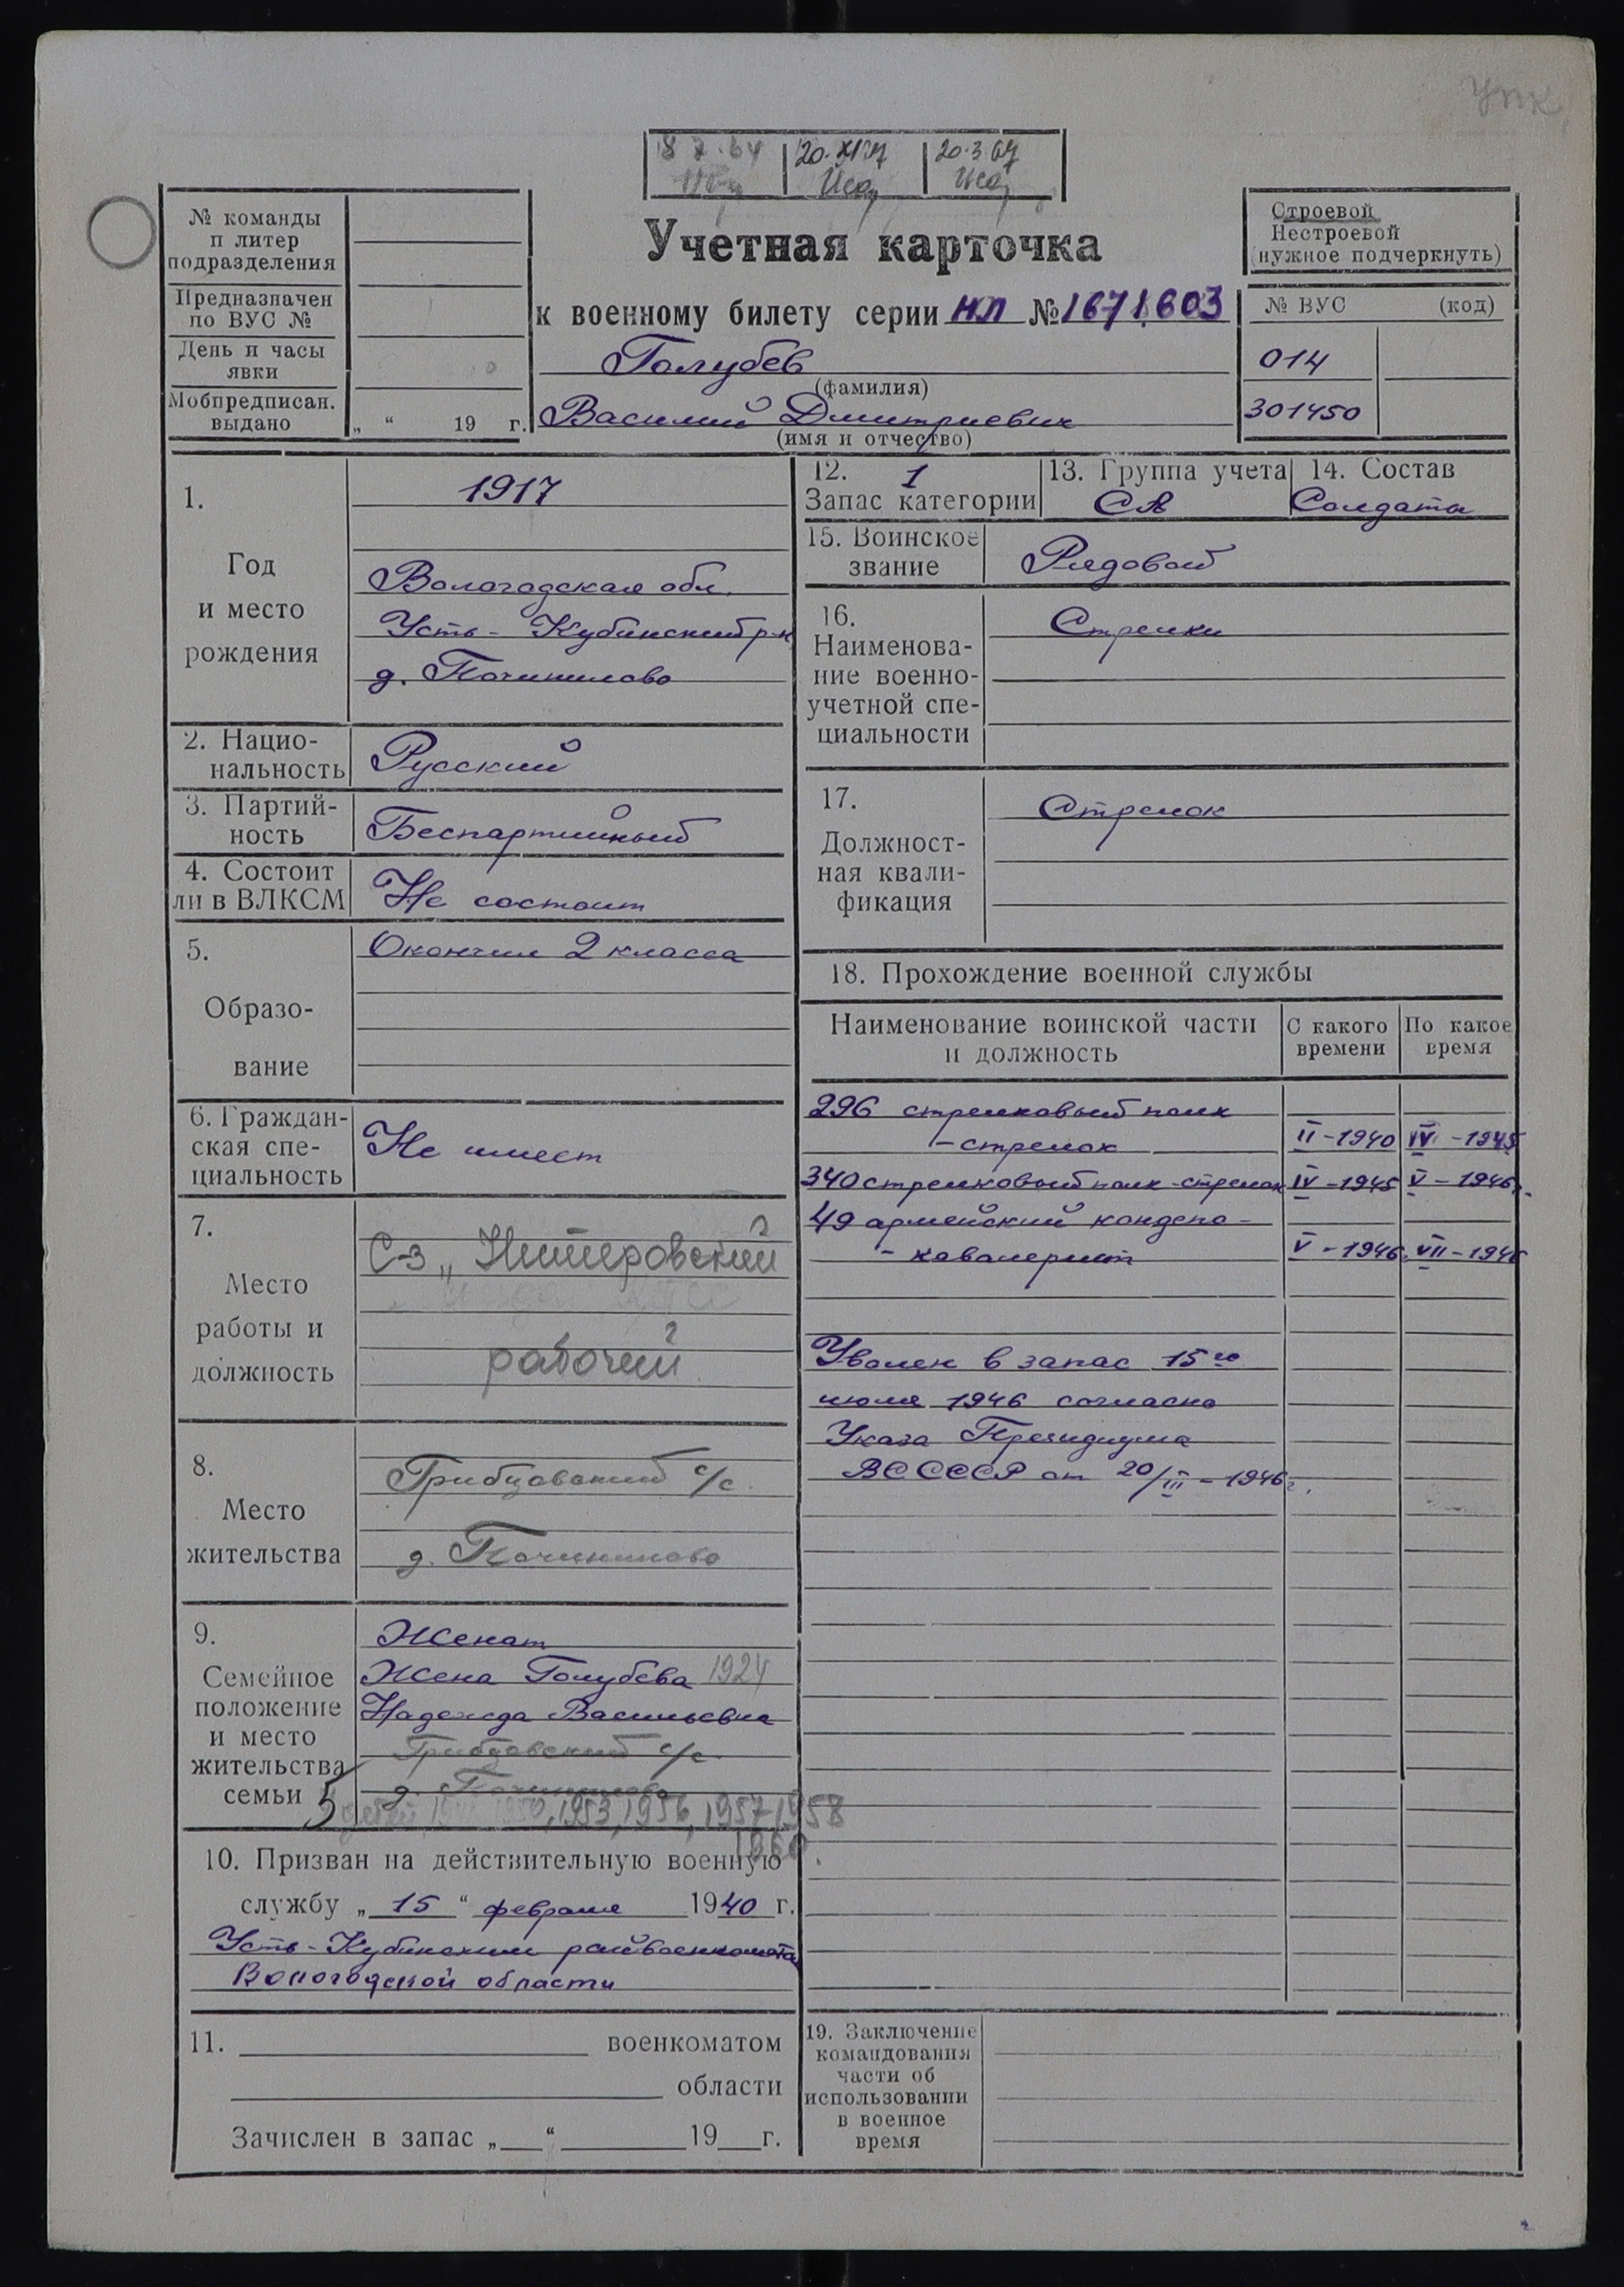 УПК
8 7.64 20.XI.17 20.3.67
Учетная карточка
к военному билету серии НЛ № 1671603
Голубев
(фамилия)
Василий Дмитриевич
(имя и отчество)
№ команды
п литер
подразделения
Предназначен
по ВУС №
День и часы
явки
Мобпредписан.
выдано „ “ 19 г.
Строевой
Нестроевой
(нужное подчеркнуть)
№ ВУС (код)
014
301450
1. 1917
Год
и место
рождения
Вологодская обл.
Усть-Кубинский р-н
д. Починилово
2. Нацио-
нальность Русский
3. Партий-
ность Беспартийный
4. Состоит
ли в ВЛКСМ Не состоит
5. Окончил 2 класса
Образо-
вание
6. Граждан-
ская спе-
циальность
Не имеет
7.
Место
работы и
должность
С-з „
рабочий
8.
Место
жительства
Грибцовский с/с.
д. Починилово
9.
Семейное
положение
и место
жительства
семьи
Женат
Жена Голубева 1924
Надежда Васильевна
Грибцовский с/с
д. Починилово
5 детей 1950, 1953, 1956, 1957, 1958
1960.
10. Призван на действительную военную
службу „ 15 “ февраля 1940 г.
Усть-Кубинским райвоенкомата
Вологодской области
11. военкоматом
области
Зачислен в запас „ “ 19 г.
12. 1
Запас категории
13. Группа учета
СА
14. Состав
Солдаты
15. Воинское
звание Рядовой
16.
Наименова-
ние военно-
учетной спе-
циальности
Стрелки
17.
Должност-
ная квали-
фикация
Стрелок
18. Прохождение военной службы
Наименование воинской части
и должность
С какого
времени
По какое
время
296 стрелковый полк
- стрелок II-1940 IV-1945
340 стрелковый полк-стрелок IV-1945 V-1946г.
49 армейский кондепо-
- кавалерист V-1946 VII-1946
Уволен в запас 15го
июля 1946 согласно
Указа Президиума
ВС СССР от 20/III-1946г.
19. Заключение
командования
части об
использовании
в военное
время